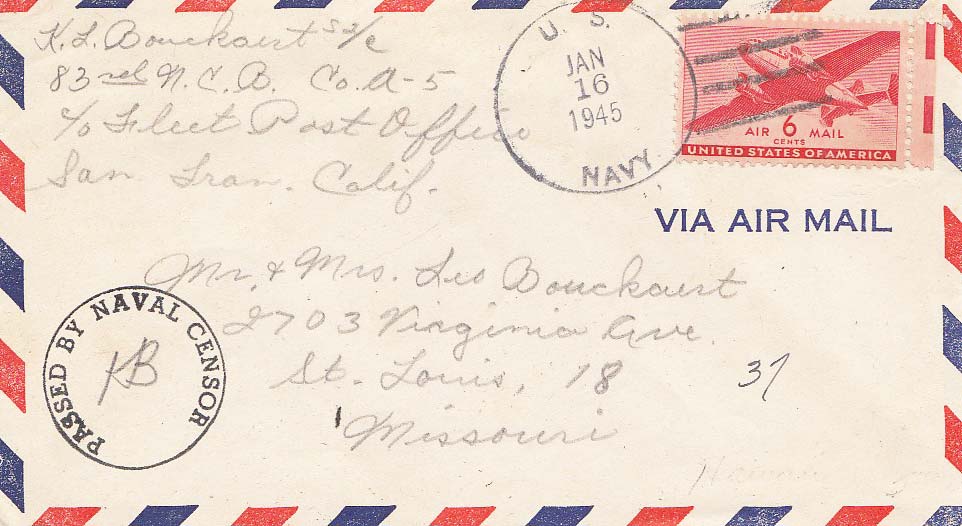 K. L. Bouckaert S 2/c
83rd N.C.B. Co. A-5
c/o Fleet Post Office
San Fran. Calif.
U. S.
JAN
16
1945
NAVY
AIR 6 MAIL
CENTS
UNITED STATES OF AMERICA
VIA AIR MAIL
Mr. & Mrs. Leo Bouckaert
2703 Virginia Ave.
St. Louis, 18
37
Missouri
PASSED BY NAVAL CENSOR